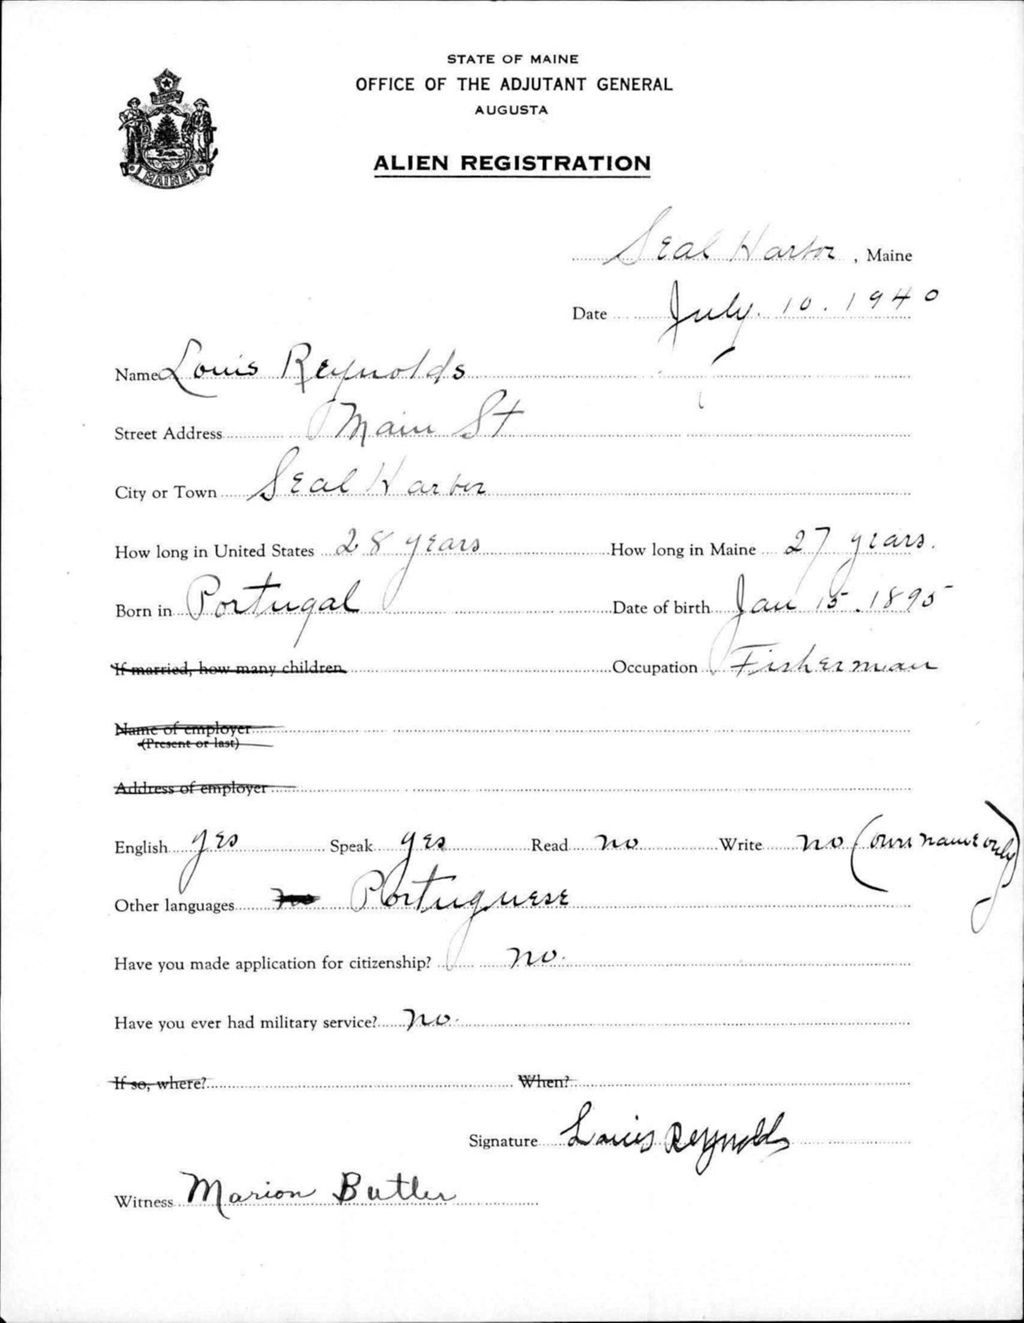 STATE OF MAINE
OFFICE OF THE ADJUTANT GENERAL
AUGUSTA
ALIEN REGISTRATION
MAINE
Seal Harbor, Maine
Date July. 10. 1940
Name Louis Reynolds
Street Address Main St
City or Town Seal Harbor
How long in United States 28 years How long in Maine 27 years.
Born in Portugal Date of birth Jan 15. 1895
If married, how many children Occupation Fisherman
Name of employer
(Present or last)
Address of employer
English yes Speak yes Read no Write no (own name only)
Other languages no Portuguese
Have you made application for citizenship? no.
Have you ever had military service? no.
If so, where? When?
Signature Louis Reynolds
Witness Marion Butler